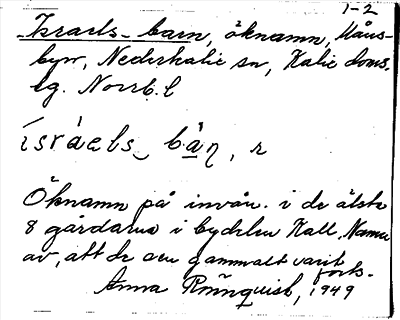 1-2
Israels-barn, öknamn, Måns-
byn, Nederkalix sn, Kalix doms.
lg. Norrb. l
ísráels bån, n
Öknamn på invån. i de älsta
8 gårdarna i bydelen Kall. Namn
av, att de av gammalt varit
förk.
Anna Rönnquist, 1949